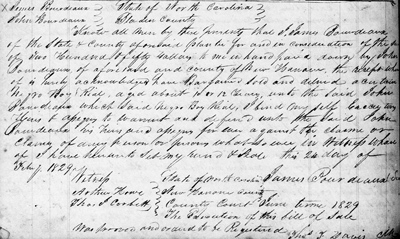 James Bourdeaux } State of North Carolina }
John Bourdeaux } Bladen County }
Know all men by these presents that I James Bourdeaux
of the State & County aforesaid planter for and in consideration of the sum
of two Hundred & fifty dollars to me in hand paid down by John
Bourdeaux of aforesaid and county of New Hanover the receipt where
is hereby acknowledged have bargained sold and delivered a certain
Negro Boy aged about 10 or 12 years unto the said John
Bourdeaux which said Negro Boy I bind my self
Heirs & assigns to warrant and defend unto the said John
Bourdeaux his heirs and assigns for ever against the claim or
claims of any person or persons what so ever in Witness whereof
I have hereunto set my hand & Seal this 24 day of
Feby 1829
Witness } State of North Carolina } James Bourdeaux
Howe } New Hanover County }
Thos. Corbett } County Court June term 1829
The Execution of this bill of Sale
Was proven and ordered to be Registered
Thos. F. Davis